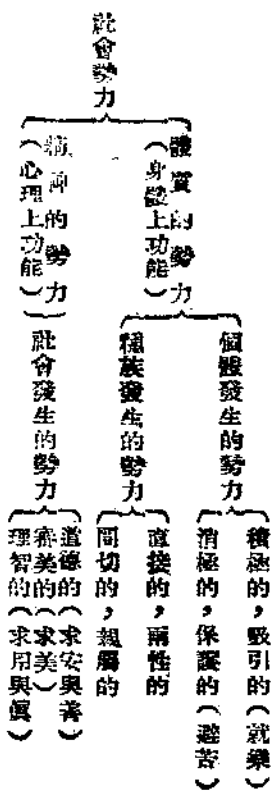 社會勢力
體質的勢力
（身體上功能）
精神的勢力
（心理上功能）
個體發生的勢力
種族發生的勢力
社會發生的勢力
積極的，吸引的（就樂）
消極的，保護的（避苦）
直接的，兩性的
間切的，親屬的
道德的（求安與善）
審美的（求美）
理智的（求用與眞）